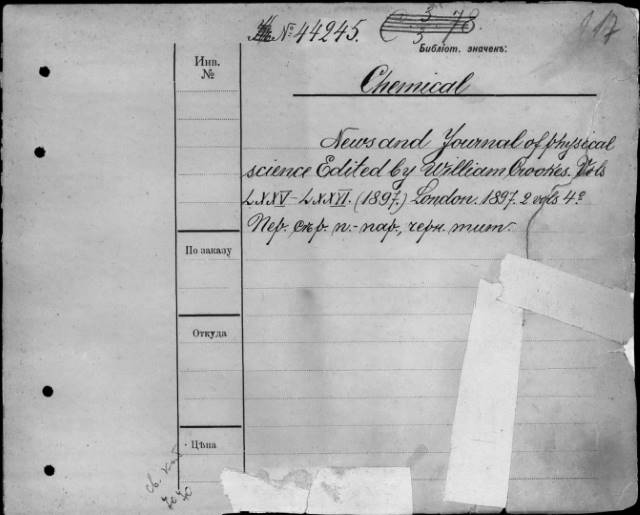 № 44245. 3 78.
3
Библіот. значекъ:
Инв.
№
Chemical
News and Journal of physical
science Edited by William Crookes. Vols
LXXV-LXXVI. (1897.) London. 1897. 2 vols 4º
Пер. скр. п.-пар., черн. тит.
По заказу
Откуда
Цѣна
св.